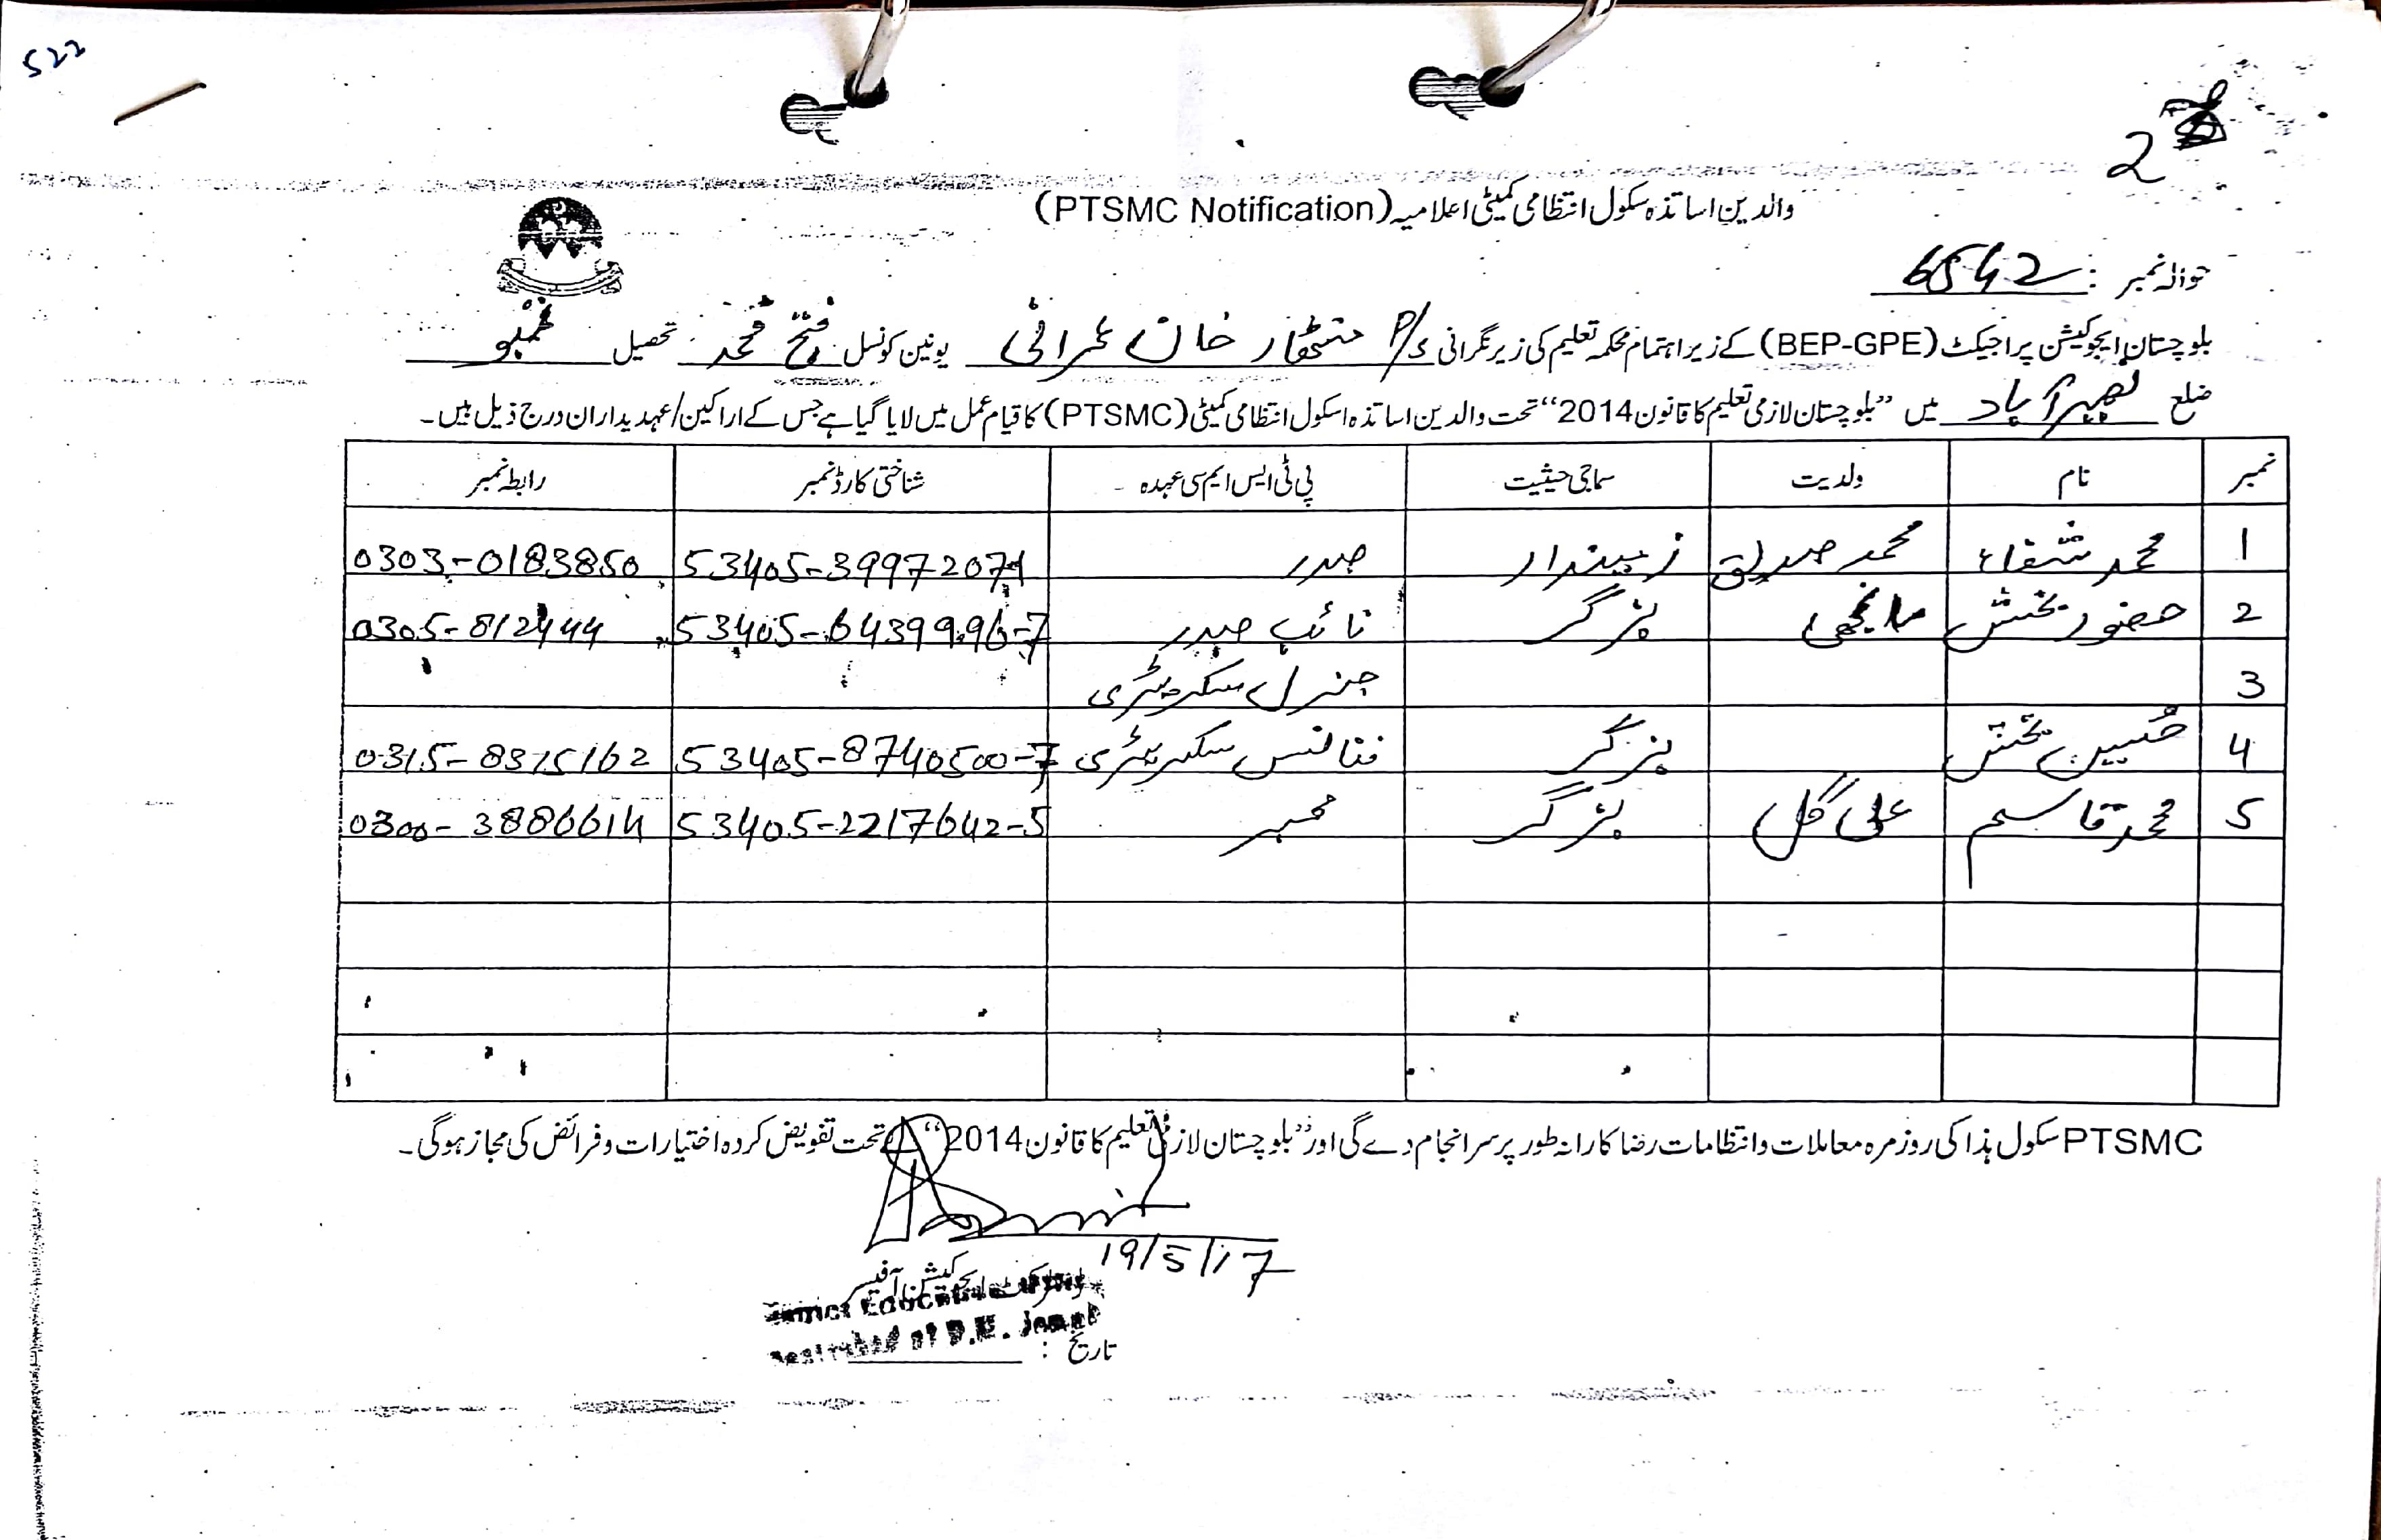 522
2
والدین اساتذہ سکول انتظامی کمیٹی اعلامیہ (PTSMC Notification)
حوالہ نمبر : 6542
بلوچستان ایجوکیشن پراجیکٹ (BEP-GPE) کے زیر اہتمام محکمہ تعلیم کی زیر نگرانی P/S منٹھار خان عمرانی یونین کونسل فتح محمد تحصیل تمبو
ضلع نصیرآباد میں "بلوچستان لازمی تعلیم کا قانون 2014" تحت والدین اساتذہ اسکول انتظامی کمیٹی (PTSMC) کا قیام عمل میں لایا گیا ہے جس کے اراکین/عہدیداران درج ذیل ہیں۔
نمبر نام ولدیت سماجی حیثیت پی ٹی ایس ایم سی عہدہ شناختی کارڈ نمبر رابطہ نمبر
1 محمد شفاء محمد صدیق زمیندار صدر 53405-39972071 0303-0183850
2 حضور بخش مانجھی بزگر نائب صدر 53405-6439996-7 0305-812444
3 جنرل سکریٹری
4 حسین بخش بزگر فنانس سکریٹری 53405-8740500-7 0315-8375162
5 محمد قاسم علی گل بزگر ممبر 53405-2217642-5 0300-3886614
PTSMC سکول ہذا کی روزمرہ معاملات و انتظامات رضاکارانہ طور پر سرانجام دے گی اور "بلوچستان لازمی تعلیم کا قانون 2014" کے تحت تفویض کردہ اختیارات و فرائض کی مجاز ہوگی۔
19/5/17
ڈسٹرکٹ ایجوکیشن آفیسر
تاریخ :